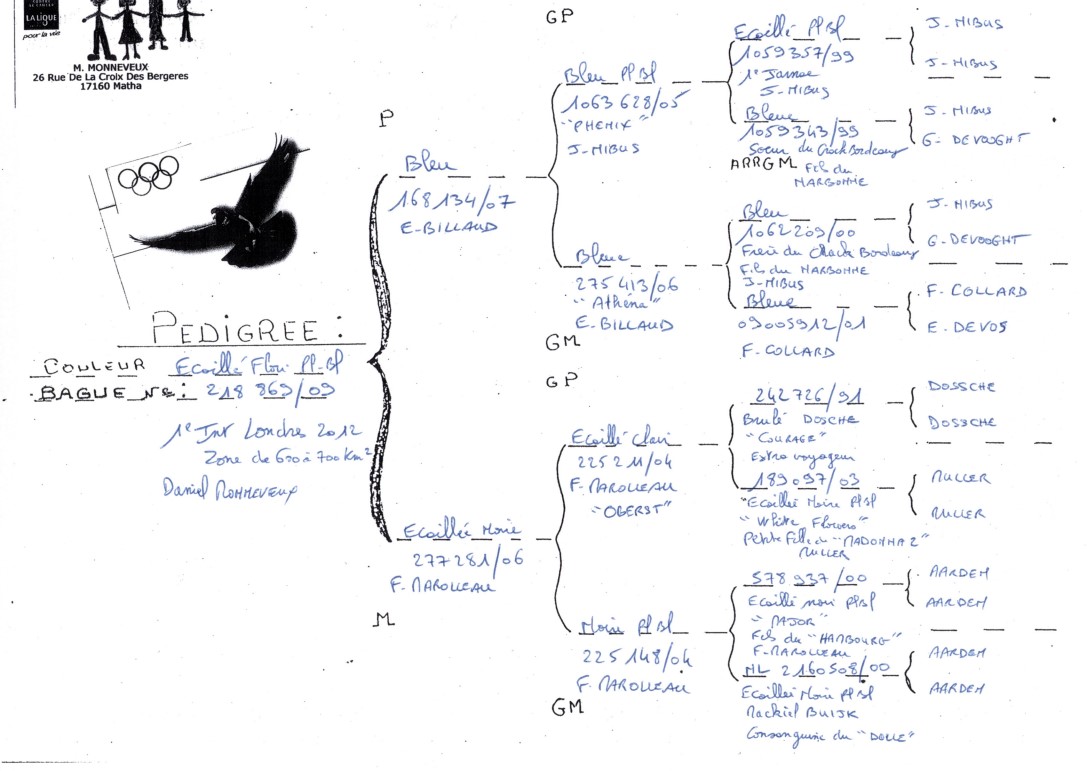 LA LIGUE
pour la vie
M. MONNEVEUX
26 Rue De La Croix Des Bergeres
17160 Matha
PEDIGREE :
COULEUR Ecaillé Flori Pl-Bl
BAGUE Nº: 218 869/09
1e Int Londres 2012
Zone de 600 à 700 Km²
Daniel MONNEVEUX
P
Bleu
168 134/07
E-BILLAUD
M
Ecaillée Noire
277 281/06
F. MAROLLEAU
GP
Bleu Pl Bl
1063 628/05
"PHENIX"
J-NIBUS
GM
Bleue
275 413/06
"Athéna"
E-BILLAUD
GP
Ecaillé Clair
225 211/04
F. MAROLLEAU
"OBERST"
GM
Noire Pl Bl
225 148/04
F. MAROLLEAU
Ecaillé Pl Bl
1059357/99
1e Jarnac
J-NIBUS
Bleue
1059343/99
Soeur du Crack Bordeaux
ARRGM Fils du
NARBONNE
Bleu
1062209/00
Frère du Crack Bordeaux
Fils du NARBONNE
J-NIBUS
Bleue
09005912/01
F. COLLARD
242 726/91
Brulé DOSCHE
"COURAGE"
Extra voyageur
189 097/03
"Ecaillée Noire Pl Bl
"White Flowers"
Petite Fille de "MADONNA 2"
MULLER
578 937/00
Ecaillé noir Pl Bl
"MAJOR"
Fils du "HAMBOURG"
F-MAROLLEAU
NL 2160508/00
Ecaillée Noire Pl Bl
Mackiel BUIJK
Consanguine du "DOLLE"
J-NIBUS
J-NIBUS
J-NIBUS
G-DEVOOGHT
J-NIBUS
G-DEVOOGHT
F-COLLARD
E.DEVOS
DOSSCHE
DOSSCHE
MULLER
MULLER
AARDEN
AARDEN
AARDEN
AARDEN